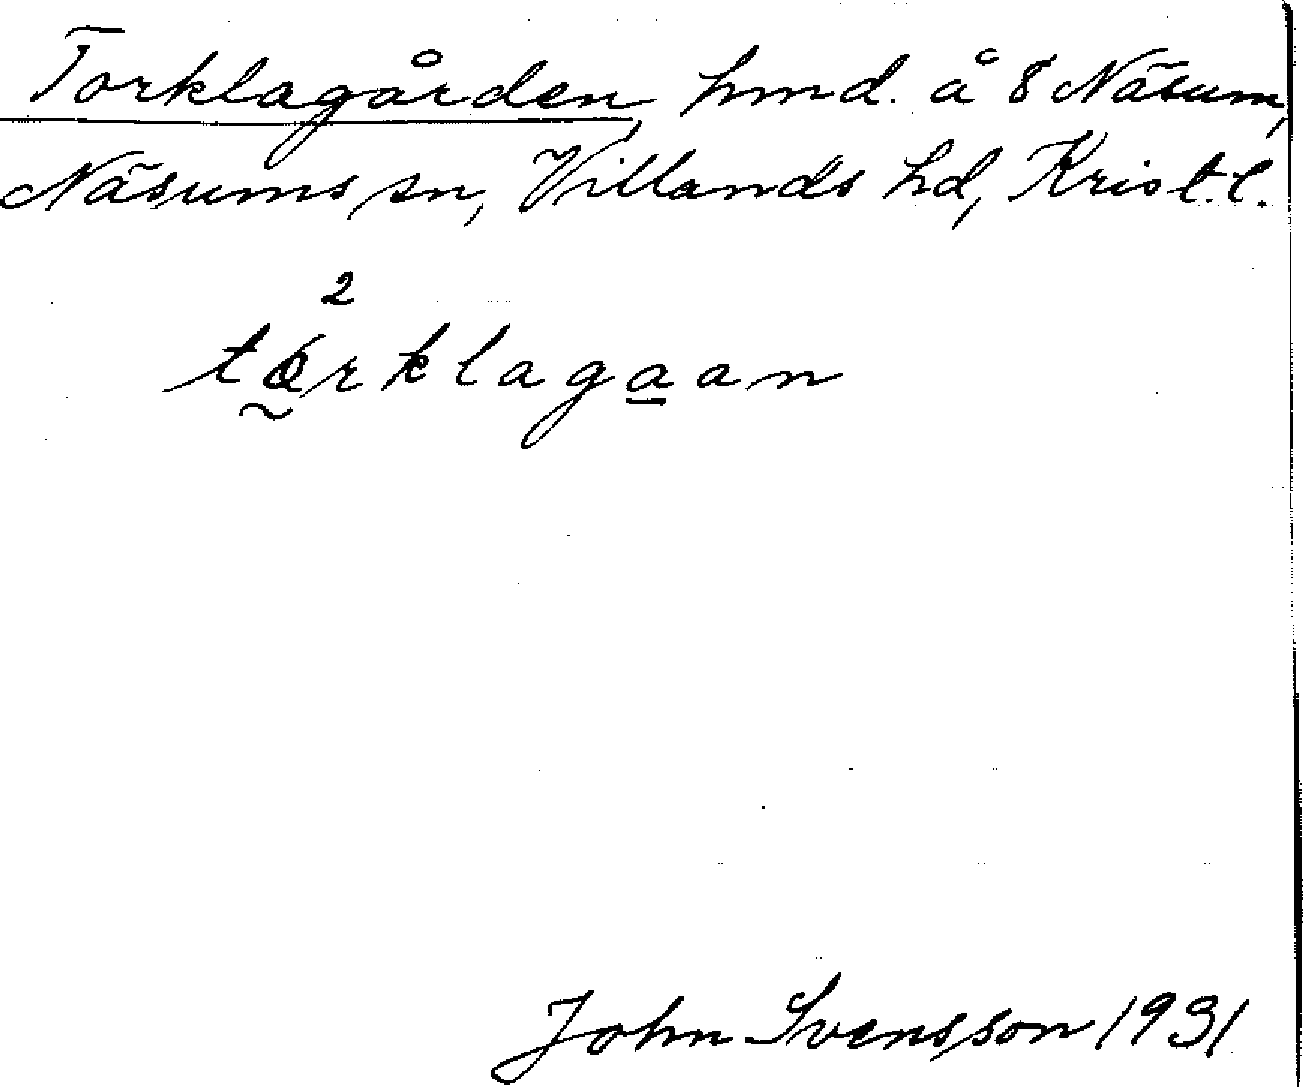 Torklagården, hmd. å 8 Näsum,
Näsums sn, Villands hd, Krist. l.
2
torklagaan
John Svensson 1931